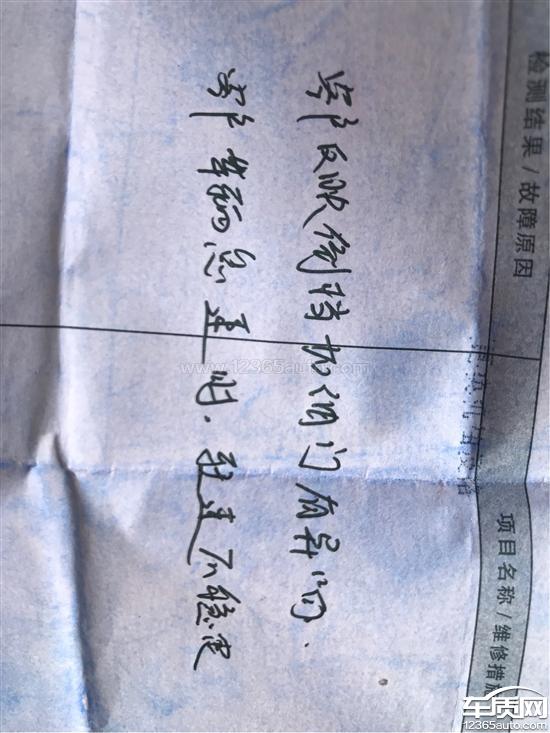 检测结果/故障原因
项目名称/维修措施
客户反映倒挡加油门有异响.
客户车辆怠速时.转速不稳定
www.12365auto.com
车质网
12365auto.com